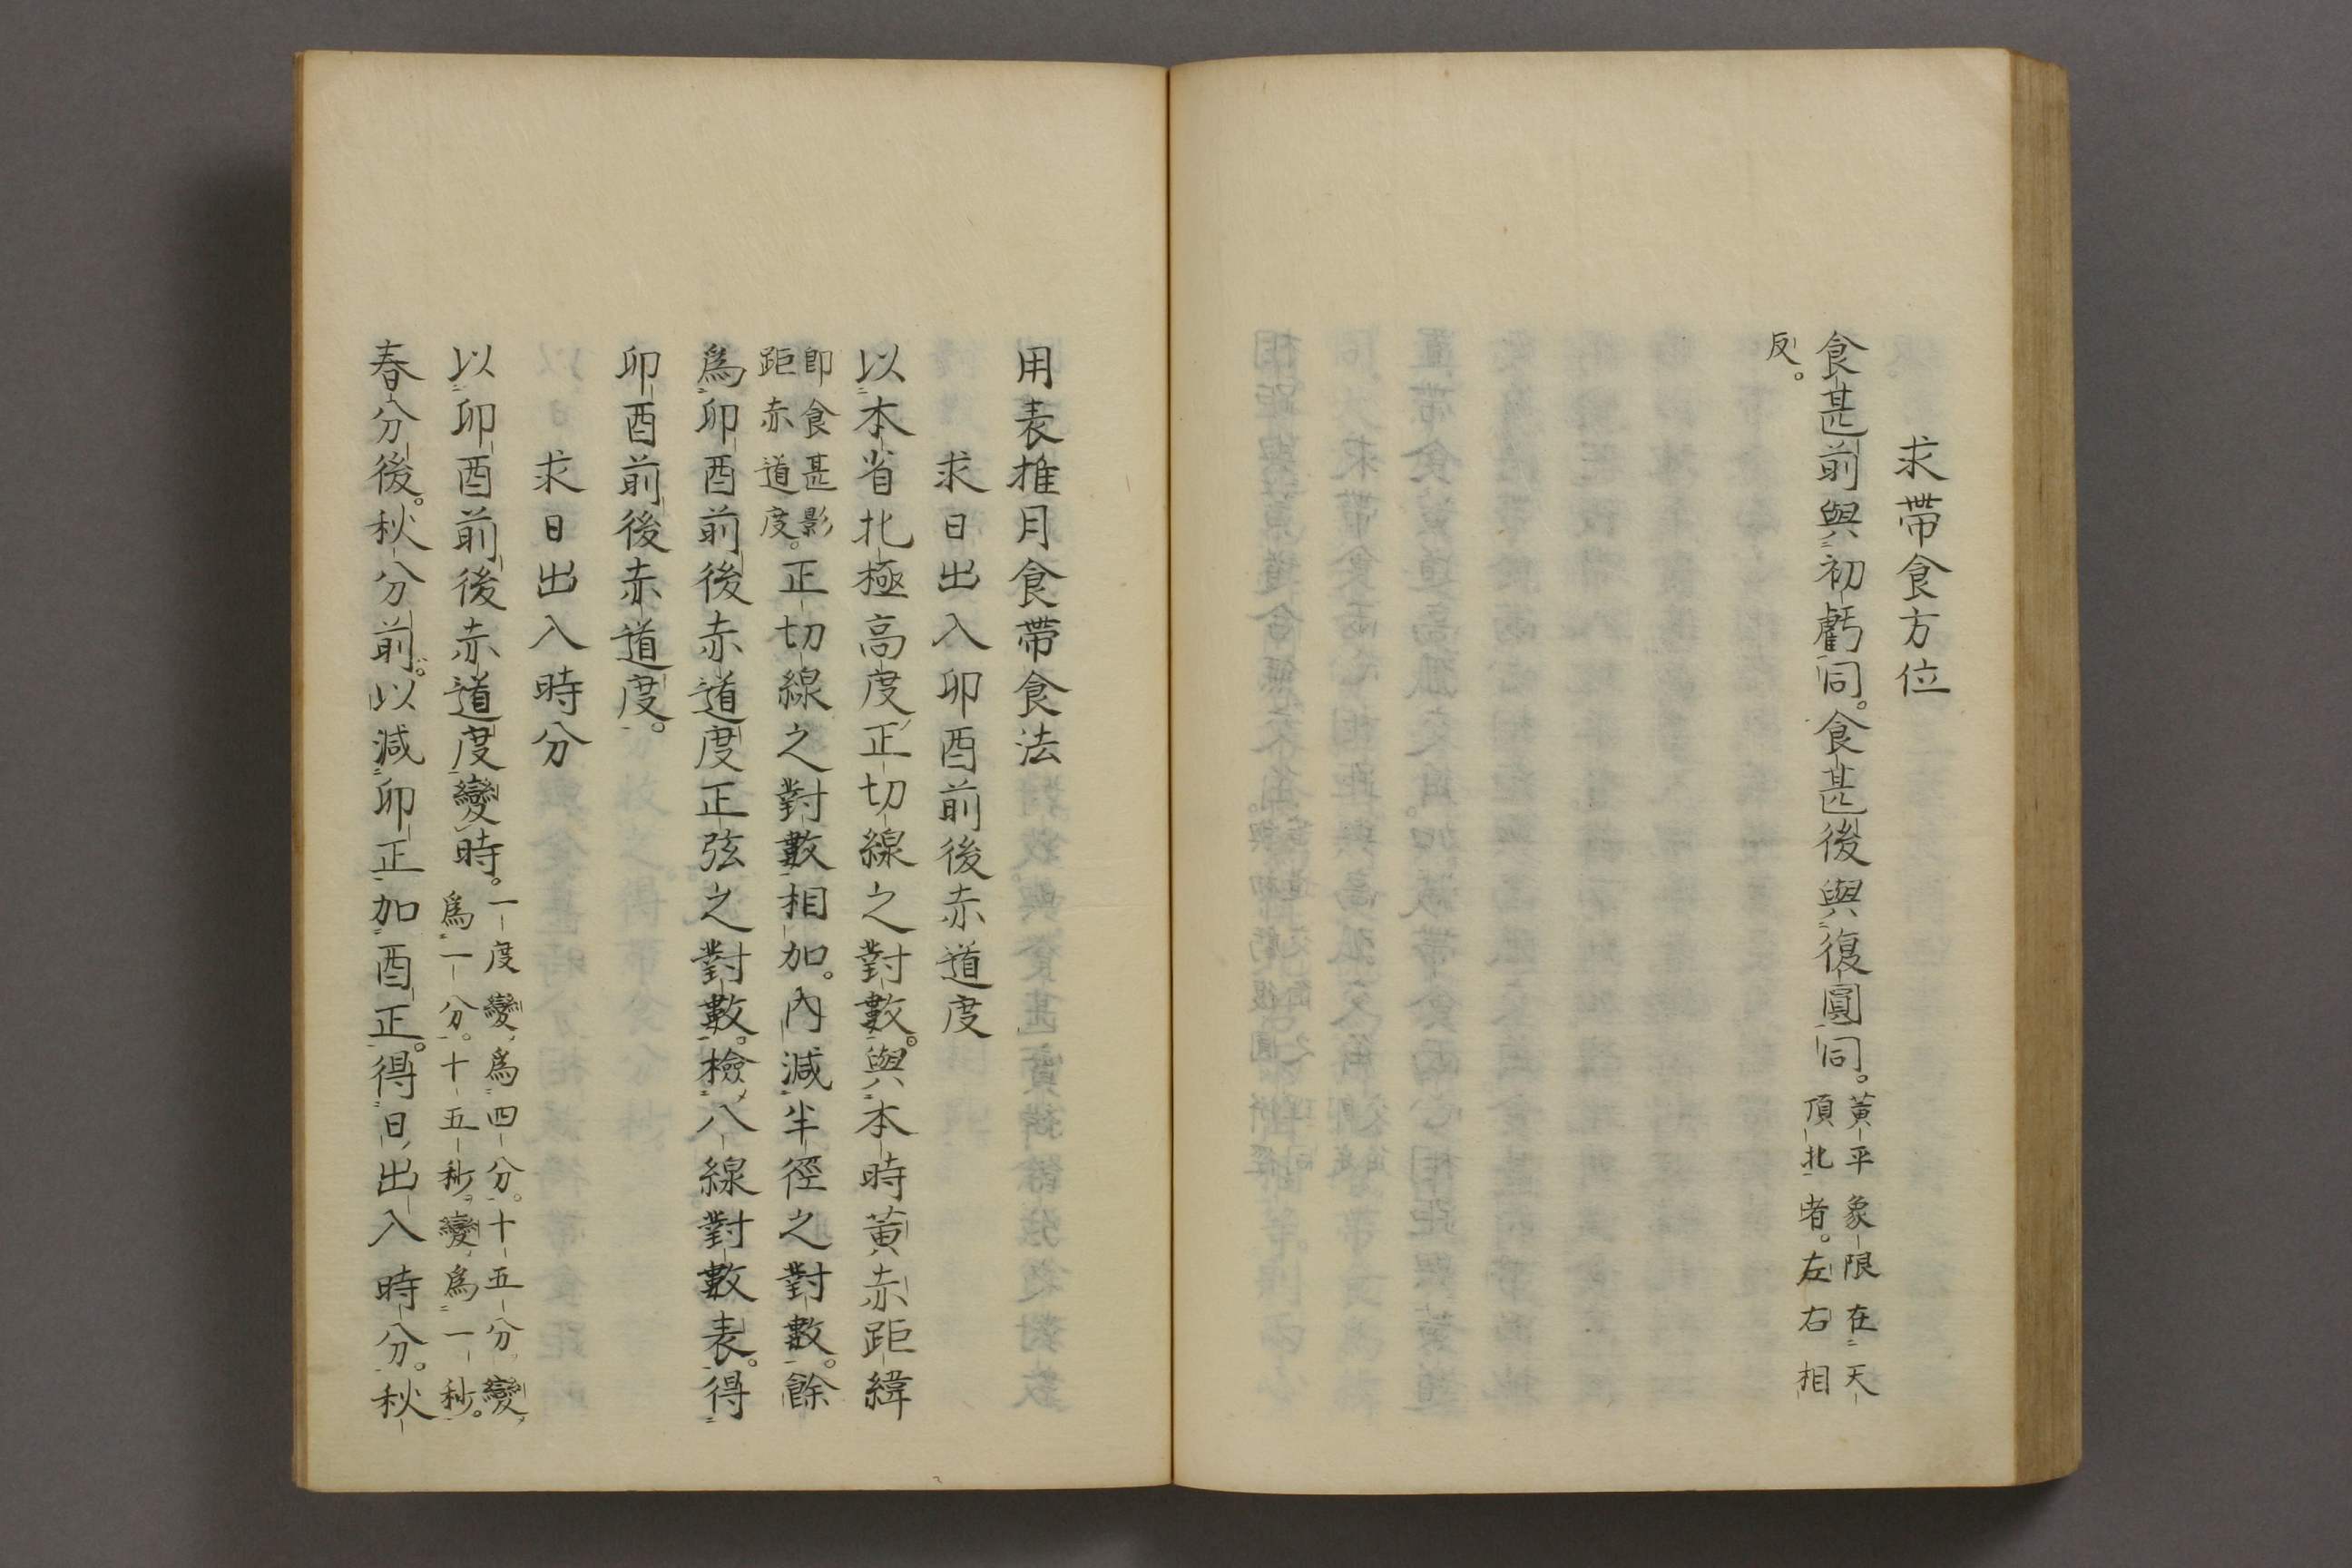 求帶食方位
食甚前與初虧同。食甚後與復圓同。黃平象限在天
頂北者。左右相
反。
用表推月食帶食法
求日出入卯酉前後赤道度
以本省北極高度正切線之對數。與本時黃赤距緯
卽食甚影
距赤道度。正切線之對數相加。內減半徑之對數。餘
爲卯酉前後赤道度正弦之對數。檢八線對數表。得
卯酉前後赤道度。
求日出入時分
以卯酉前後赤道度變時。一度變爲四分。十五分變
爲一分。十五秒。變爲一秒。
春分後。秋分前。以減卯正加酉正。得日出入時分。秋